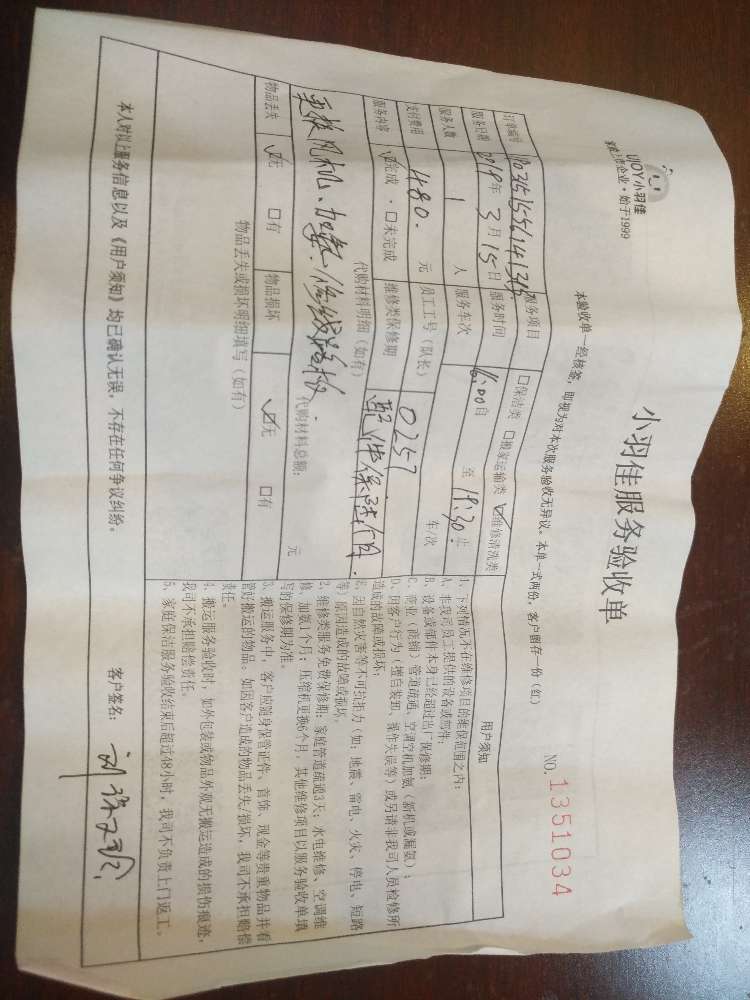 UJOY小羽佳
家庭服务企业·始于1999
小羽佳服务验收单
NO. 1351034
本验收单一经核签,即视为对本次服务验收无异议。本单一式两份,客户留存一份(红)
订单编号
服务项目 □保洁类 □搬家运输类 ☑维修清洗类
服务日期 2019年3月15日 服务时间 16:00自 至 18:30止
服务人数 1 人 服务车次 车/次
支付费用 480. 元 员工工号(队长) 0257
服务内容 ☑完成·□未完成 维修类保修期
代购材料明细(如有)
更换风机、加氟、
代购材料总额: 元
物品丢失 ☑无 □有 物品损坏 ☑无 □有
物品丢失或损坏明细填写(如有)
用户须知
1、下列情况不在维修项目的维保范围之内:
A、非我司员工提供的设备或部件;
B、设备或部件本身已经超过出厂保修期;
C、商业(店铺)管道疏通、空调空机加氨(新机或漏氨);
D、因客户行为(擅自装卸、操作失误等)或另请非我司人员检修所
造成的故障或损坏;
E、因自然灾害等不可抗拒力(如:地震、雷电、火灾、停电、短路
等)原因造成的故障或损坏。
2、维修类服务免费保修期:家庭管道疏通3天;水电维修、空调维
修、加氨1个月;压缩机更换6个月,其他维修项目以服务验收单填
写的保修期为准。
3、搬运服务中,客户应随身保管证件、首饰、现金等贵重物品并看
管好搬运的物品。如因客户造成的物品丢失/损坏,我司不承担赔偿
责任。
4、搬运服务验收时,如外包装或物品外观无搬运造成的损伤痕迹,
我司不承担赔偿责任。
5、家庭保洁服务验收结束后超过48小时,我司不负责上门返工。
本人对以上服务信息以及《用户须知》均已确认无误,不存在任何争议纠纷。
客户签名: